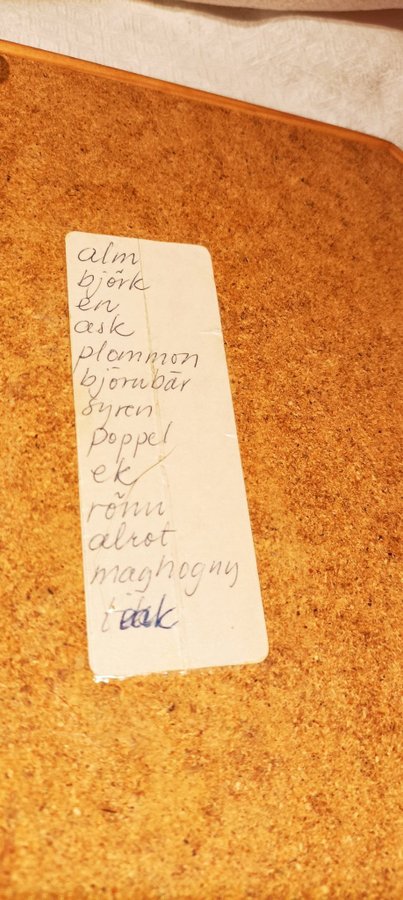 alm
björk
en
ask
plommon
björnbär
syren
poppel
ek
rönn
alrot
maghogny
teak